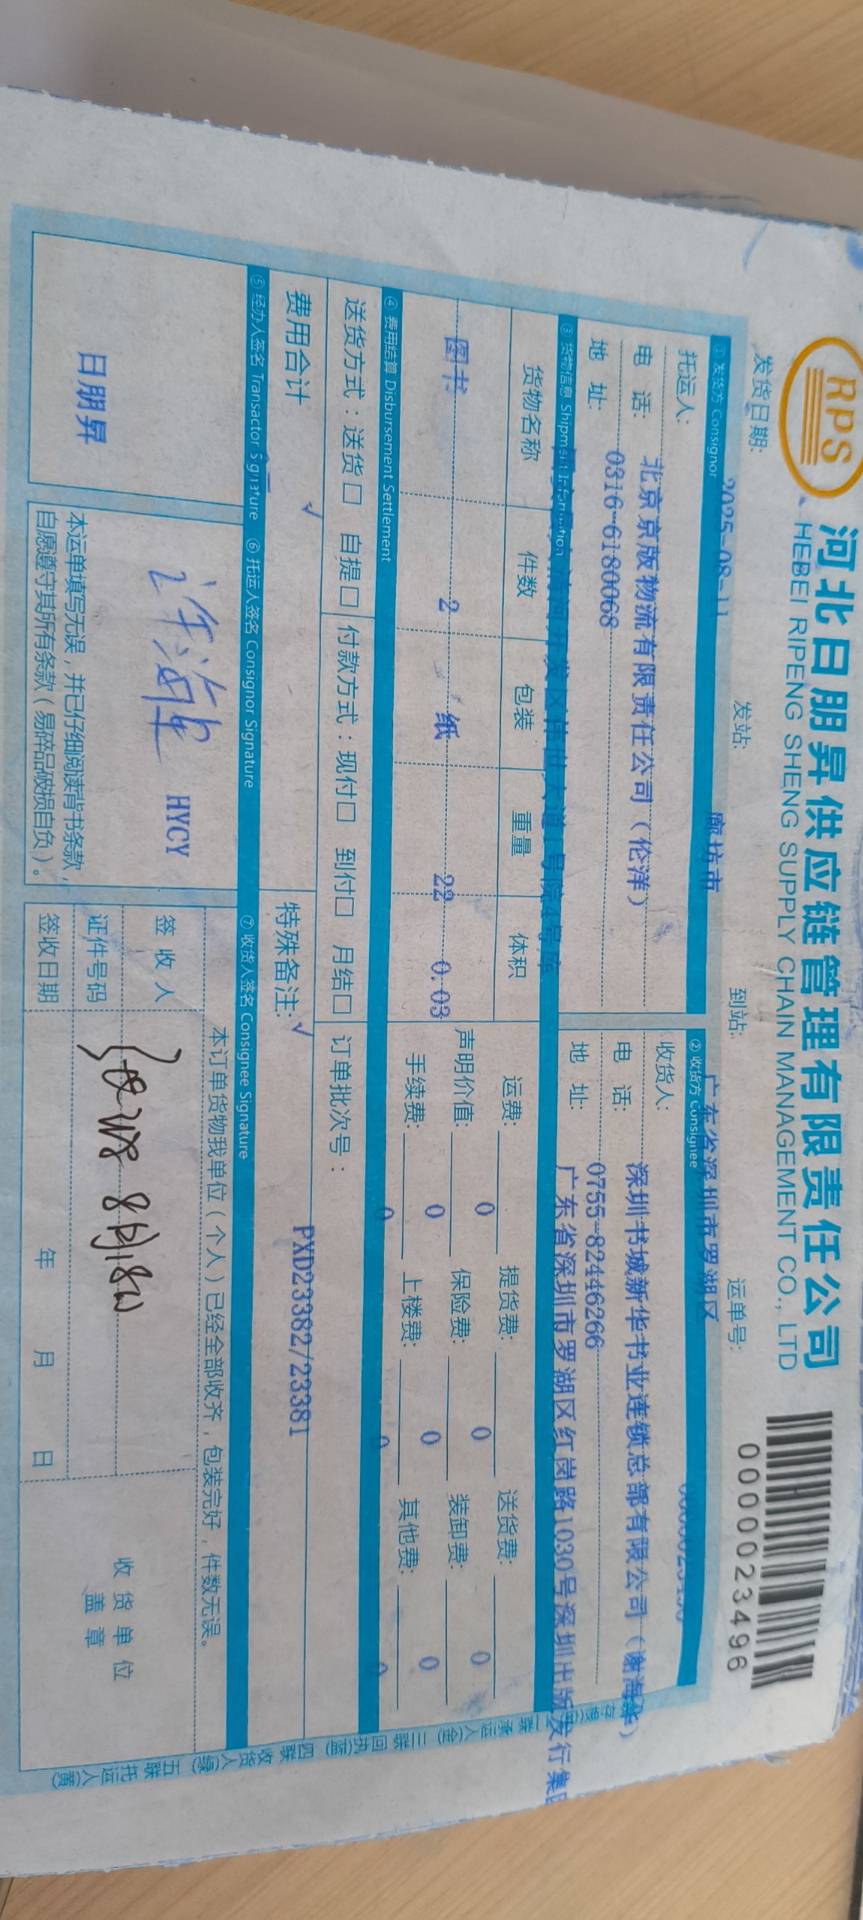 RPS
河北日朋昇供应链管理有限责任公司
HEBEI RIPENG SHENG SUPPLY CHAIN MANAGEMENT CO., LTD
0000023496
发货日期: 2025-08-11 发站: 廊坊市 到站: 广东省深圳市罗湖区 运单号:
① 发货方 Consignor
② 收货方 Consignee
托运人: 北京京版物流有限责任公司（伦洋）
收货人: 深圳书城新华书业连锁总部有限公司（谢海华）
电 话: 0316-6180068
电 话: 0755-82446266
地 址:
地 址: 广东省深圳市罗湖区红岗路1030号深圳出版发行集团
③ 货物信息 Shipment Information
货物名称 件数 包装 重量 体积
图书 2 纸 22 0.03
运费: 0 提货费: 0 送货费: 0
声明价值: 0 保险费: 0 装卸费: 0
手续费: 0 上楼费: 0 其他费: 0
④ 费用结算 Disbursement Settlement
送货方式：送货□ 自提□ √
付款方式：现付□ 到付□ 月结□ √
订单批次号：
费用合计
特殊备注: PXD23382/23381
⑤ 经办人签名 Transactor Signature
⑥ 托运人签名 Consignor Signature
⑦ 收货人签名 Consignee Signature
日朋昇
HYCY
本运单填写无误，并已仔细阅读背书条款，
自愿遵守其所有条款（易碎品破损自负）。
本订单货物我单位（个人）已经全部收齐，包装完好，件数无误。
签 收 人
证件号码
签收日期 年 月 日
收货单位
盖章
一联承运人(金) 三联回执(蓝) 四联收货人(绿) 五联托运人(黄)